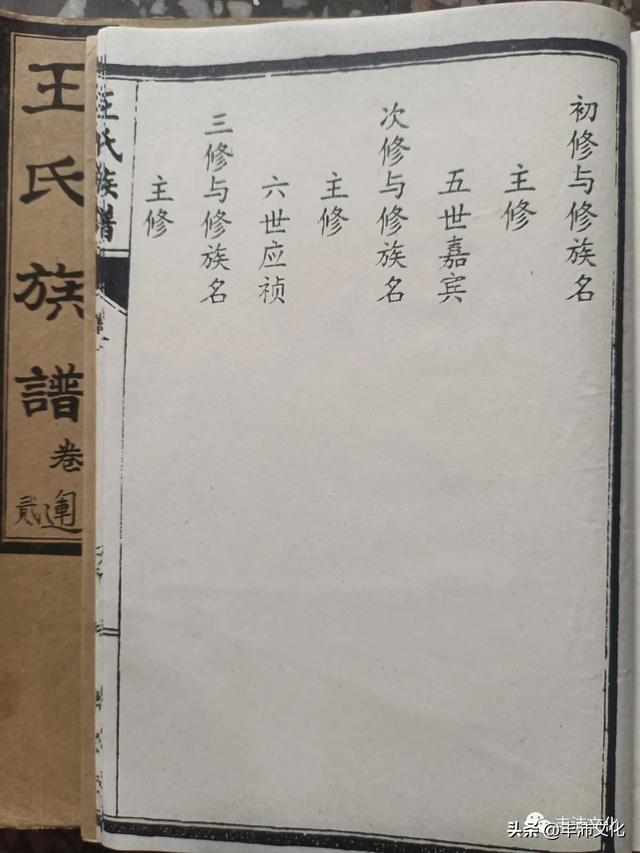 初修与修族名
主修
五世嘉宾
次修与修族名
主修
六世应祯
三修与修族名
主修
王氏族谱
王氏族譜
卷
貳
头条 @丰沛文化